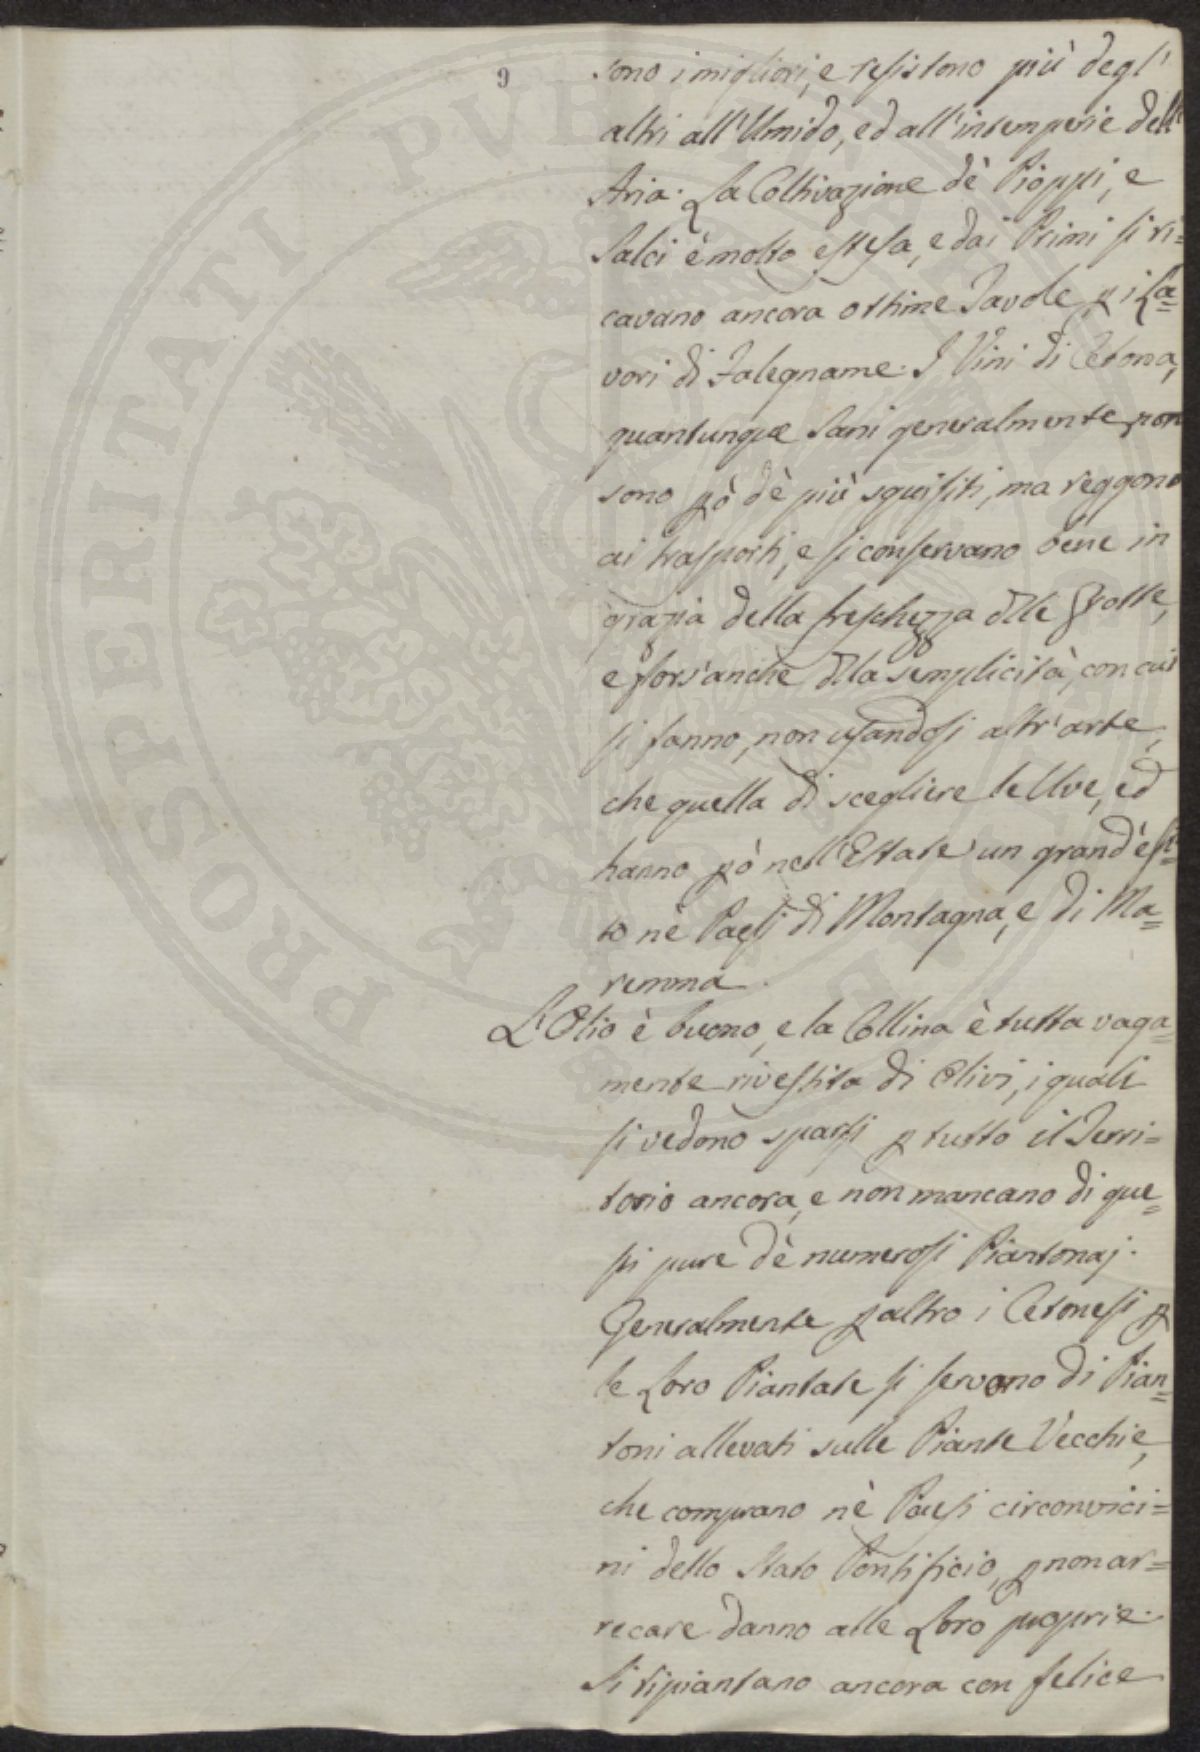 9
sono i migliori, e resistono più degl'
altri all'Umido, ed all'intemperie dell'
Aria. La Coltivazione dè Pioppi, e
Salci è molto estesa, e dai Primi si ri=
cavano ancora ottime Tavole p i La=
vori di Falegname. I Vini di Cetona,
quantunque Sani generalmente non
sono pò dè più squisiti, ma reggono
ai trasporti, e si conservano bene in
grazia della freschezza dlle Grotte,
e fors'anche dlla semplicità, con cui
si fanno, non usandosi altr'arte,
che quella di scegliere le Uve, ed
hanno pò nell'Estate un grand'esi=
to nè Paesi di Montagna, e di Ma=
remma.
L'Olio è buono, e la Collina è tutta vaga=
mente rivestita di Olivi, i quali
si vedono sparsi p tutto il Terri=
torio ancora, e non mancano di que=
sti pure dè numerosi Piantonaj.
Generalmente paltro i Cetonesi p
le Loro Piantate si servono di Pian=
toni allevati sulle Piante Vecchie,
che comprano nè Paesi circonvici=
ni dello Stato Pontificio, p non ar=
recare danno alle Loro proprie.
Si ripiantano ancora con felice
PROSPERITATI